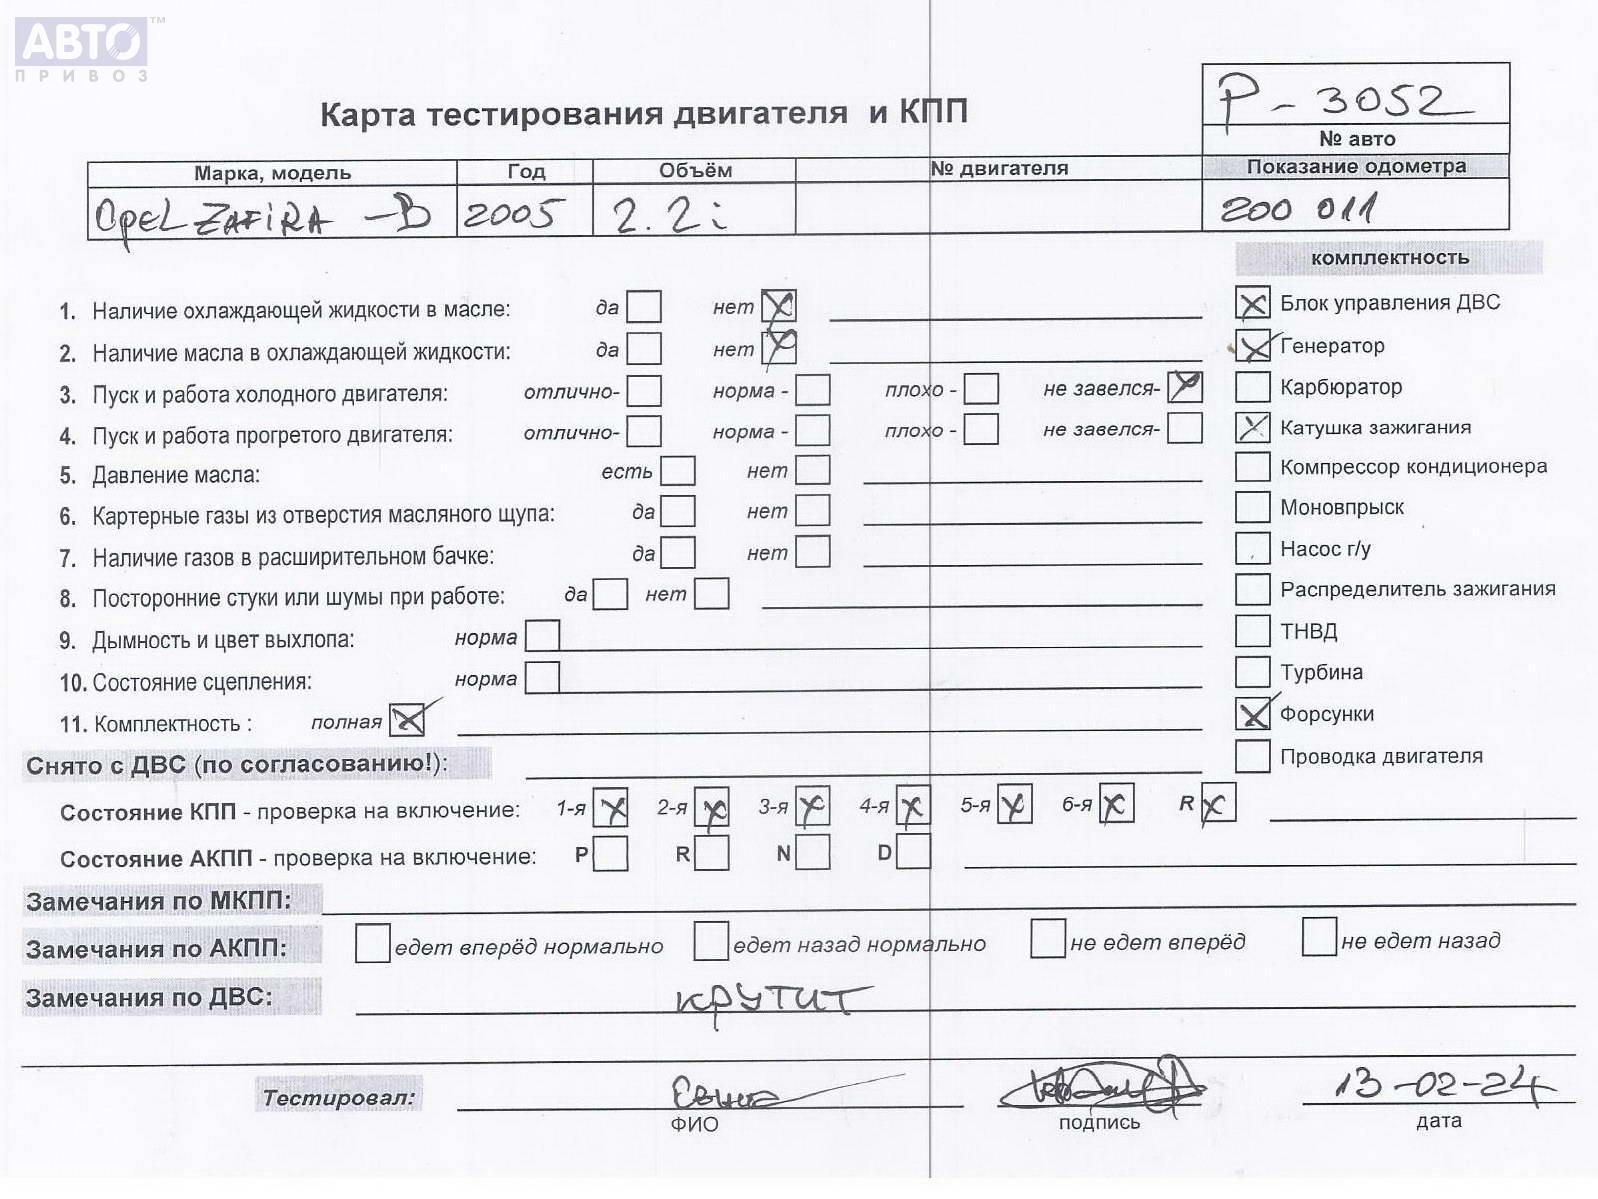 АВТО™
ПРИВОЗ
Р - 3052
Карта тестирования двигателя и КПП
№ авто
Марка, модель Год Объём № двигателя Показание одометра
Opel ZAFIRA - B 2005 2.2i 200 011
комплектность
1. Наличие охлаждающей жидкости в масле: да нет Блок управления ДВС
2. Наличие масла в охлаждающей жидкости: да нет Генератор
3. Пуск и работа холодного двигателя: отлично- норма - плохо - не завелся- Карбюратор
4. Пуск и работа прогретого двигателя: отлично- норма - плохо - не завелся- Катушка зажигания
5. Давление масла: есть нет Компрессор кондиционера
6. Картерные газы из отверстия масляного щупа: да нет Моновпрыск
7. Наличие газов в расширительном бачке: да нет Насос г/у
8. Посторонние стуки или шумы при работе: да нет Распределитель зажигания
9. Дымность и цвет выхлопа: норма ТНВД
10. Состояние сцепления: норма Турбина
11. Комплектность : полная Форсунки
Снято с ДВС (по согласованию!): Проводка двигателя
Состояние КПП - проверка на включение: 1-я 2-я 3-я 4-я 5-я 6-я R
Состояние АКПП - проверка на включение: P R N D
Замечания по МКПП:
Замечания по АКПП: едет вперёд нормально едет назад нормально не едет вперёд не едет назад
Замечания по ДВС: крутит
Тестировал: 13-02-24
ФИО подпись дата